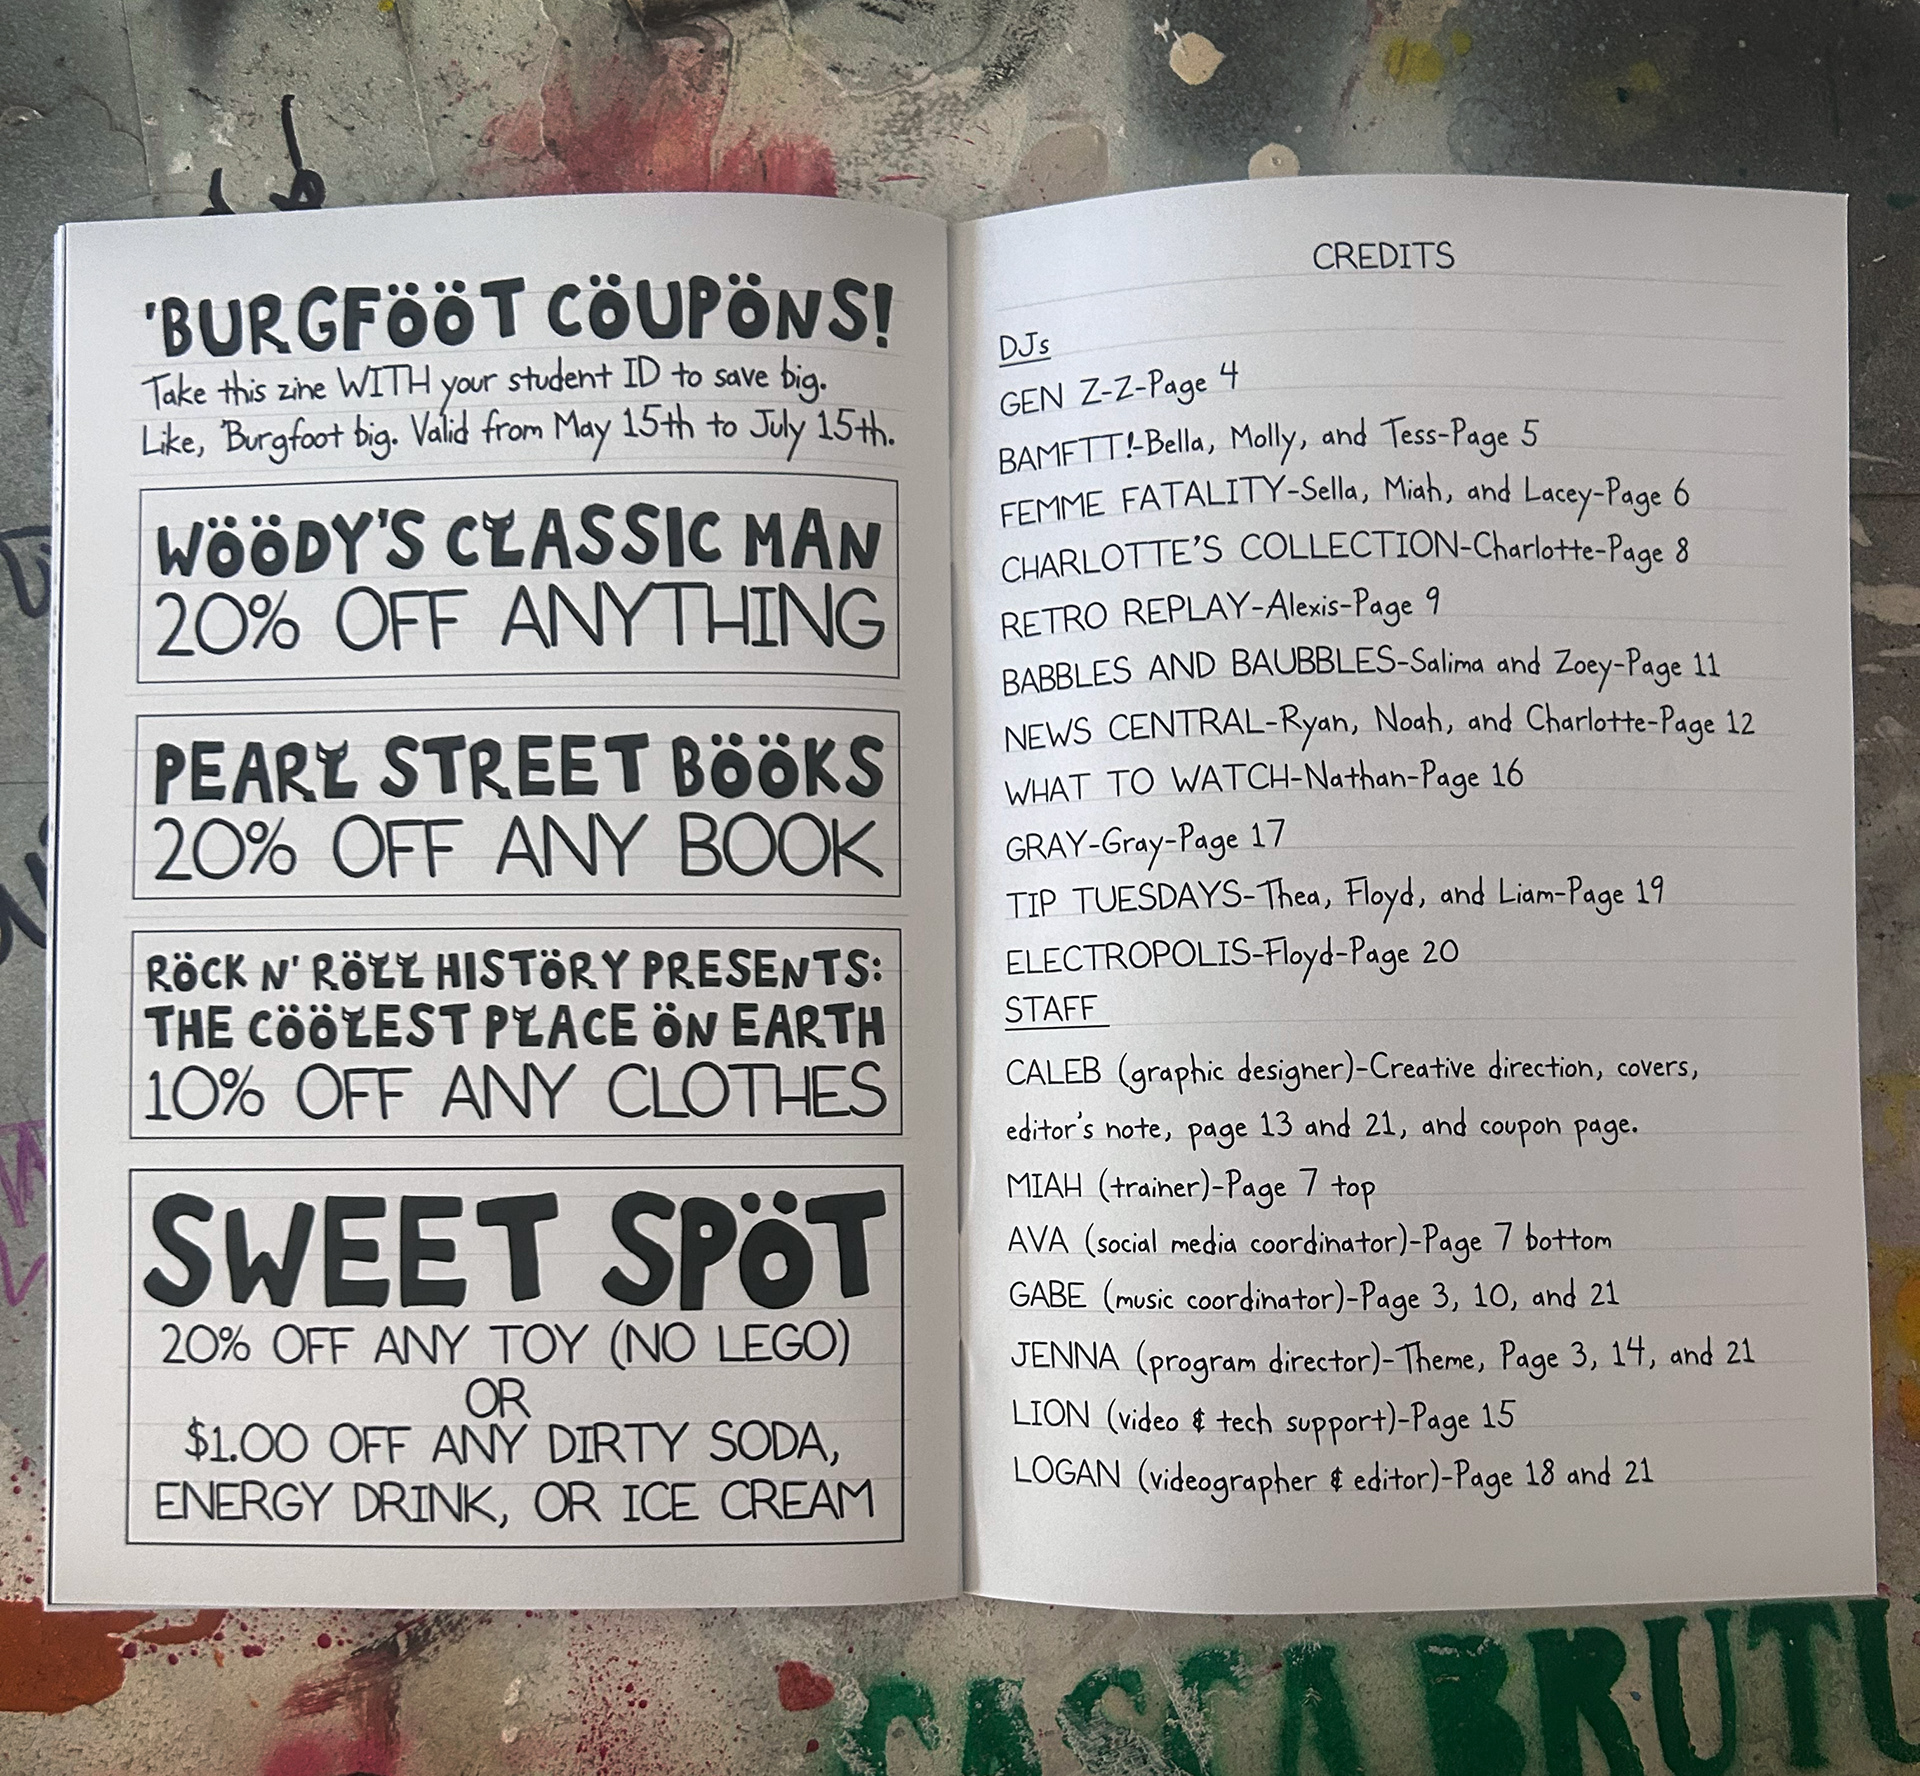 'BURGFÖÖT CÖUPÖNS!
Take this zine WITH your student ID to save big.
Like, 'Burgfoot big. Valid from May 15th to July 15th.
WÖÖDY'S CLASSIC MAN
20% OFF ANYTHING
PEARL STREET BÖÖKS
20% OFF ANY BOOK
RÖCK N' RÖLL HISTÖRY PRESENTS:
THE CÖÖLEST PLACE ÖN EARTH
10% OFF ANY CLOTHES
SWEET SPÖT
20% OFF ANY TOY (NO LEGO)
OR
$1.00 OFF ANY DIRTY SODA,
ENERGY DRINK, OR ICE CREAM
CREDITS
DJs
GEN Z-Z-Page 4
BAMFTT!-Bella, Molly, and Tess-Page 5
FEMME FATALITY-Sella, Miah, and Lacey-Page 6
CHARLOTTE'S COLLECTION-Charlotte-Page 8
RETRO REPLAY-Alexis-Page 9
BABBLES AND BAUBBLES-Salima and Zoey-Page 11
NEWS CENTRAL-Ryan, Noah, and Charlotte-Page 12
WHAT TO WATCH-Nathan-Page 16
GRAY-Gray-Page 17
TIP TUESDAYS-Thea, Floyd, and Liam-Page 19
ELECTROPOLIS-Floyd-Page 20
STAFF
CALEB (graphic designer)-Creative direction, covers,
editor's note, page 13 and 21, and coupon page.
MIAH (trainer)-Page 7 top
AVA (social media coordinator)-Page 7 bottom
GABE (music coordinator)-Page 3, 10, and 21
JENNA (program director)-Theme, Page 3, 14, and 21
LION (video & tech support)-Page 15
LOGAN (videographer & editor)-Page 18 and 21